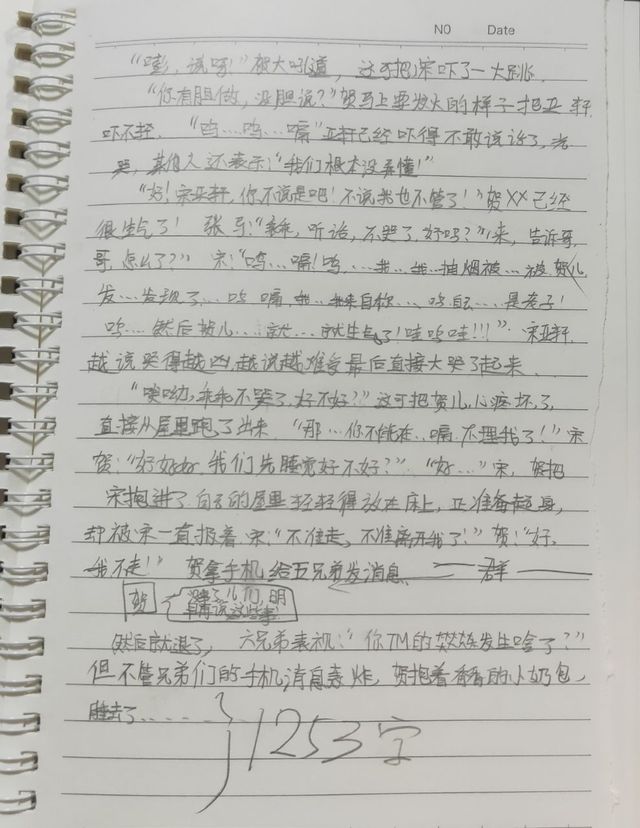 NO Date
"嘭，说呀！"贺大吼道，这可把宋吓了一大跳.
"你有胆做，没胆说？"贺马上要发火的样子把亚轩
吓不轻. "呜...呜...嗝"亚轩已经吓得不敢说话了，光
哭，其他人还表示："我们根本没弄懂！"
"好！宋亚轩，你不说是吧！不说我也不管了！"贺XX已经
很生气了！ 张马："乖乖，听话，不哭了，好吗？""来，告诉哥
哥，怎么了？" 宋："呜...嗝！呜...我...我...抽烟被...被贺儿
发...发现了...呜 嗝，我...我来自你...呜 ...是老子！
呜...然后贺儿...就...就生气了！哇呜哇！！！". 宋亚轩
越说哭得越凶，越说越难受最后直接大哭了起来.
"哎呦，乖乖不哭了，好不好？"这可把贺儿心疼坏了
直接从屋里跑了出来. "那...你不能在...嗝.不理我了！"宋
贺："好好好，我们先睡觉好不好？". "好..."宋，贺把
宋抱进了自己的屋里轻轻得放在床上，正准备起身，
却被宋一直抓着 宋："不准走，不准离开我了！"贺："好.
我不走！" 贺拿手机给五兄弟发消息. —— 群 ——
贺 睡了，儿们，明早再说这些事！
然后就退了， 六兄弟表机："你TM的 发生啥了？"
但不管兄弟们的手机消息轰炸，贺抱着香香的小奶包，
睡去了......
1253字